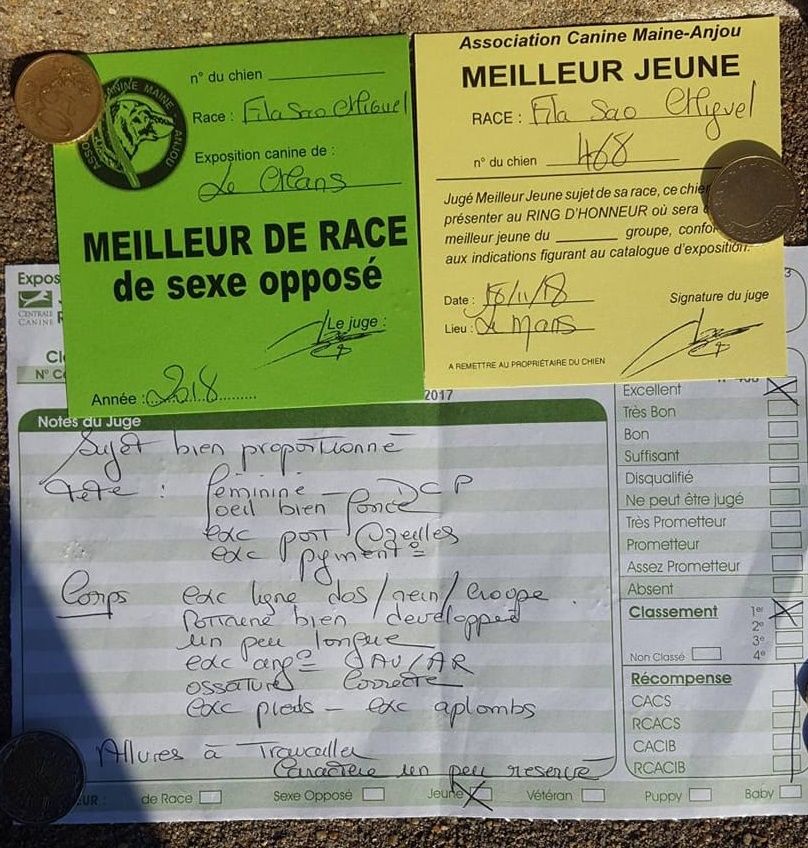 CANINE MAINE - ANJOU
n° du chien
Race : Fila Sao Miguel
Exposition canine de :
Le Mans
MEILLEUR DE RACE
de sexe opposé
Le juge :
Année : 2018
Association Canine Maine-Anjou
MEILLEUR JEUNE
RACE : Fila Sao Miguel
n° du chien 468
Jugé Meilleur Jeune sujet de sa race, ce chien
présenter au RING D'HONNEUR où sera
meilleur jeune du ______ groupe, confor
aux indications figurant au catalogue d'exposition.
Date : 18/11/18
Signature du juge
Lieu : Le Mans
A REMETTRE AU PROPRIÉTAIRE DU CHIEN
Expos
CENTRALE
CANINE
Cl
N° C
2017
Notes du Juge
Sujet bien proportionné
Tête : féminine - DCP
oeil bien foncé
exc port Oreilles
exc pigment°
Corps exc ligne dos / rein / croupe .
Poitrine bien développée
un peu longue
exc ang° AV/AR
ossature correcte
exc pieds - exc aplombs
Allures à Travailler
Caractère un peu reservé
Excellent
Très Bon
Bon
Suffisant
Disqualifié
Ne peut être jugé
Très Prometteur
Prometteur
Assez Prometteur
Absent
Classement 1er
2e
3e
Non Classé 4e
Récompense
CACS
RCACS
CACIB
RCACIB
EUR : de Race Sexe Opposé Jeune Vétéran Puppy Baby